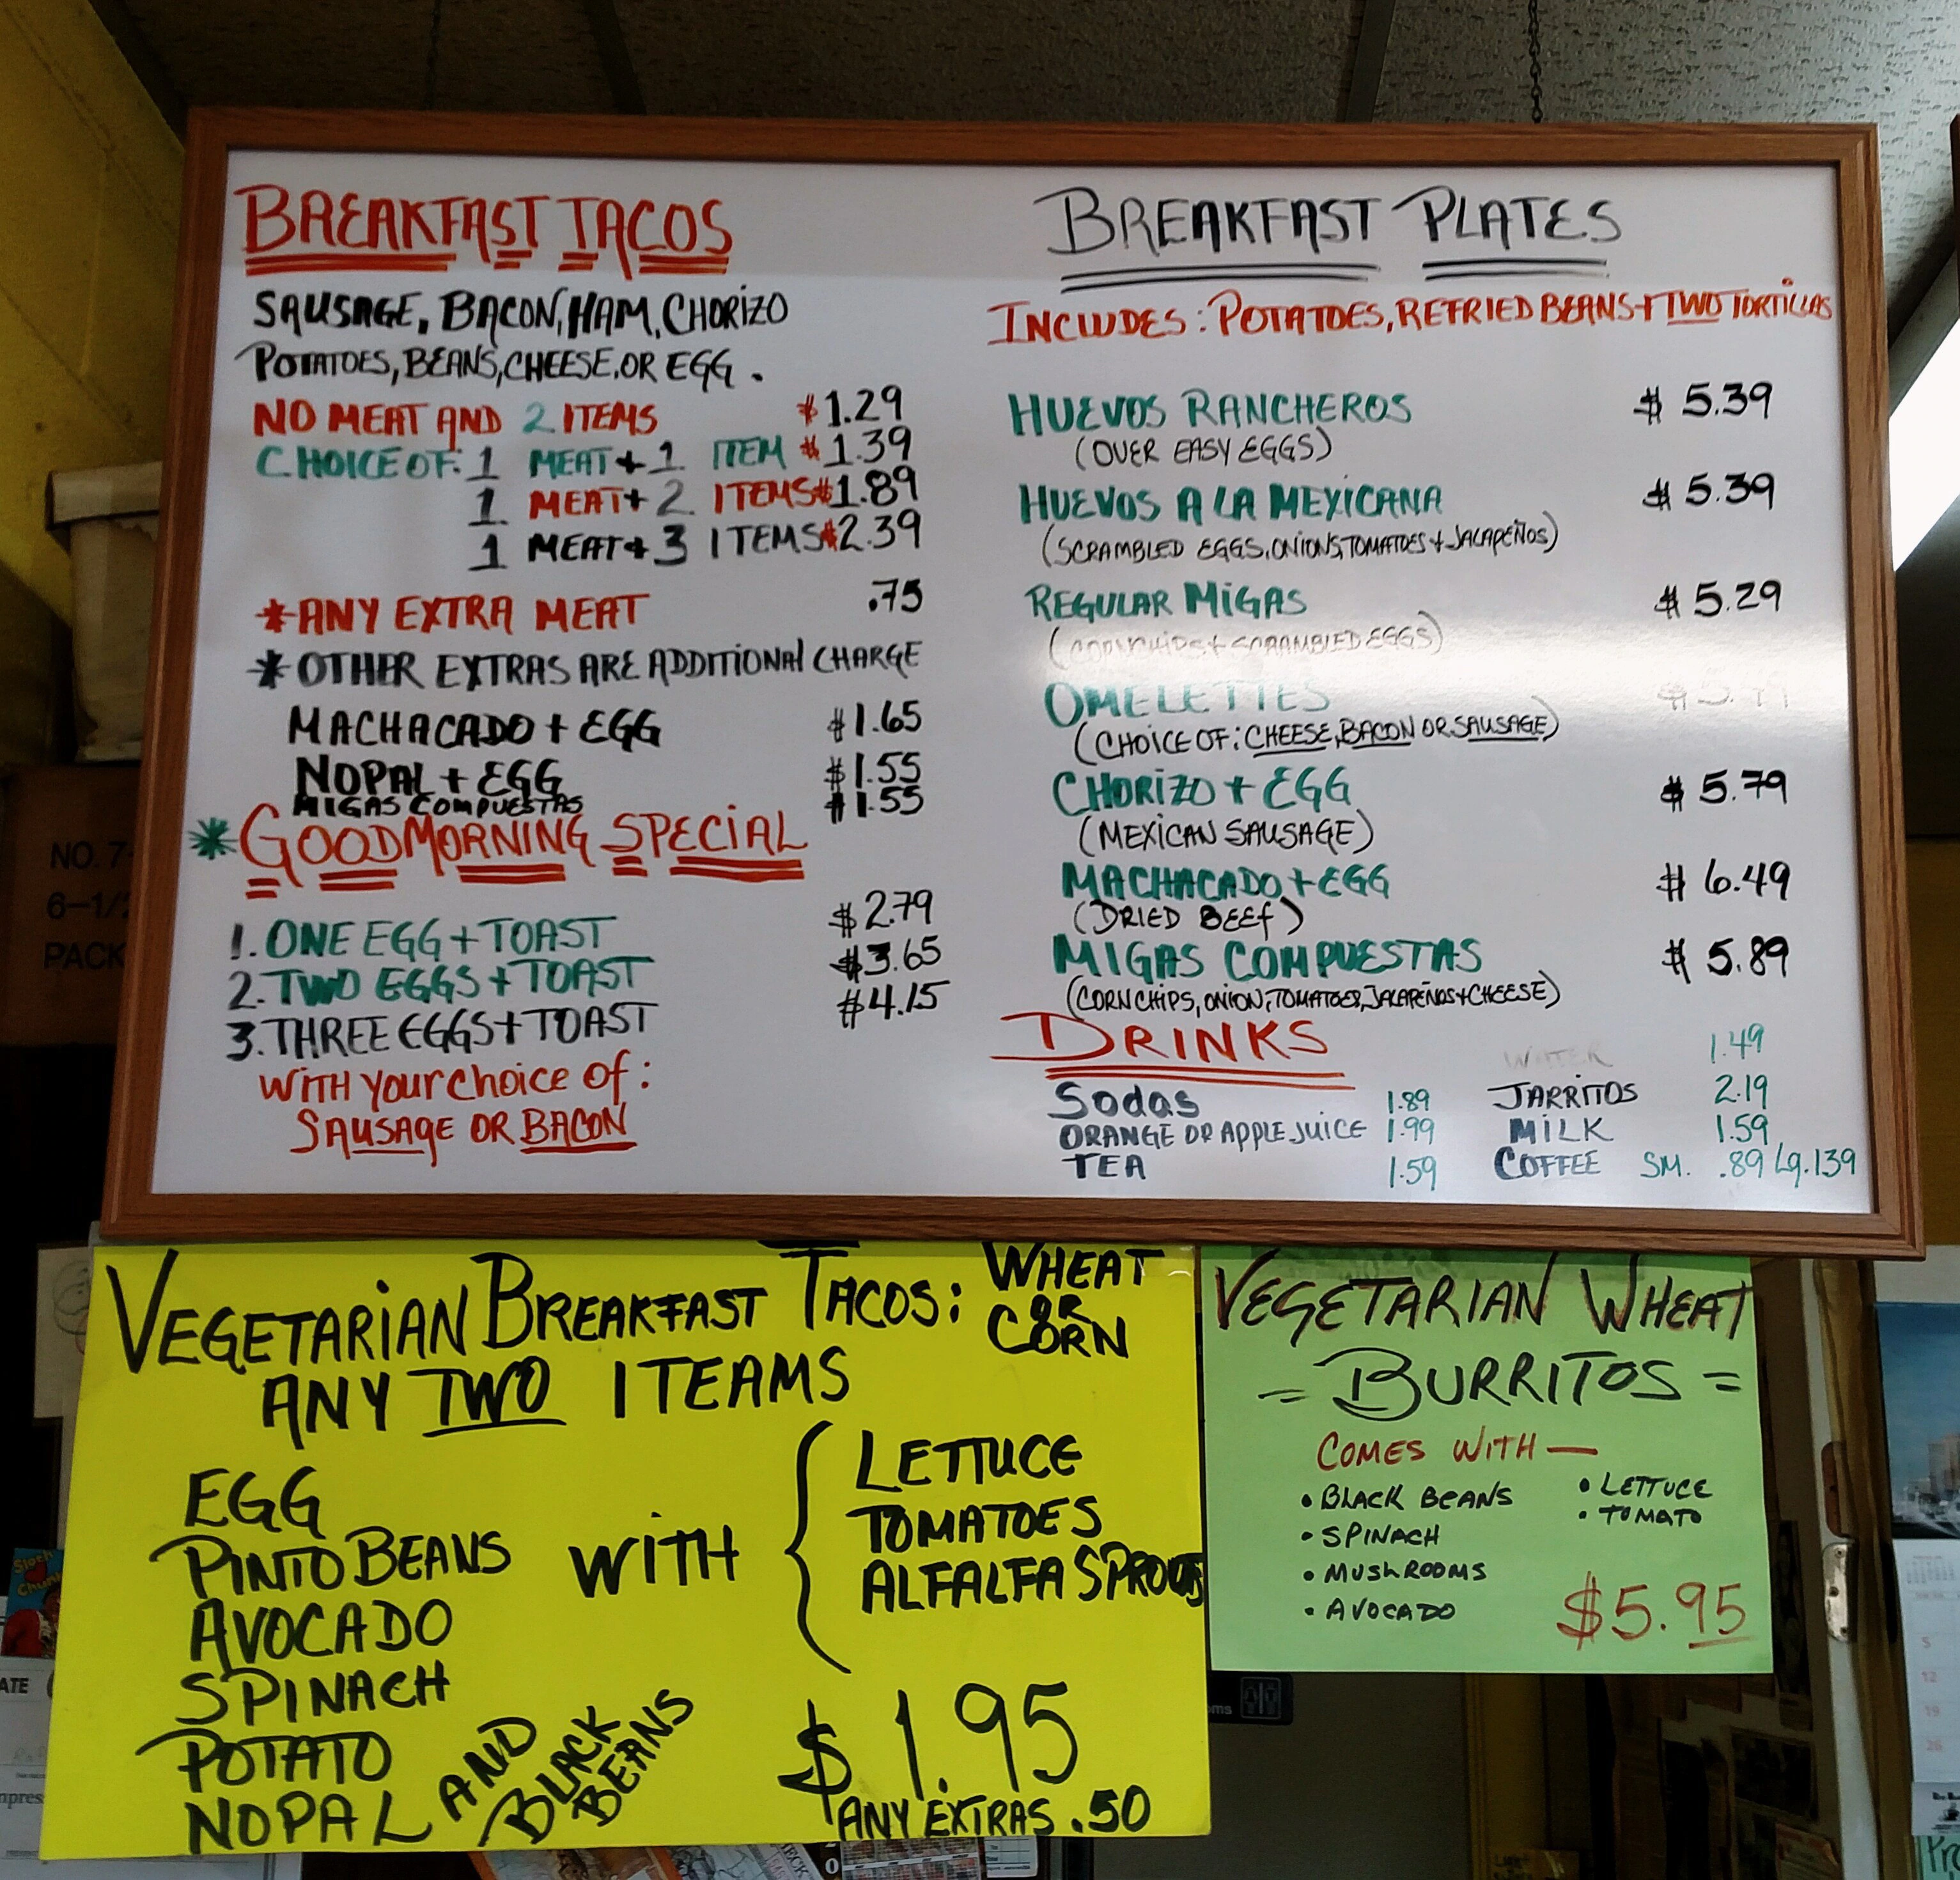 BREAKFAST TACOS
SAUSAGE, BACON, HAM, CHORIZO
POTATOES, BEANS, CHEESE, OR EGG.
NO MEAT AND 2 ITEMS $1.29
CHOICE OF: 1 MEAT + 1 ITEM $1.39
1 MEAT + 2 ITEMS $1.89
1 MEAT + 3 ITEMS $2.39
*ANY EXTRA MEAT .75
*OTHER EXTRAS ARE ADDITIONAL CHARGE
MACHACADO + EGG $1.65
NOPAL + EGG $1.55
MIGAS COMPUESTAS $1.55
*GOOD MORNING SPECIAL
1. ONE EGG + TOAST $2.79
2. TWO EGGS + TOAST $3.65
3. THREE EGGS + TOAST $4.15
WITH your choice of:
SAUSAGE OR BACON
BREAKFAST PLATES
INCLUDES: POTATOES, REFRIED BEANS + TWO TORTILLAS
HUEVOS RANCHEROS $5.39
(OVER EASY EGGS)
HUEVOS A LA MEXICANA $5.39
(SCRAMBLED EGGS, ONIONS, TOMATOES + JALAPEÑOS)
REGULAR MIGAS $5.29
(CORN CHIPS + SCRAMBLED EGGS)
OMELETTES
(CHOICE OF: CHEESE, BACON OR SAUSAGE)
CHORIZO + EGG $5.79
(MEXICAN SAUSAGE)
MACHACADO + EGG $6.49
(DRIED BEEF)
MIGAS COMPUESTAS $5.89
(CORN CHIPS, ONION, TOMATOES, JALAPEÑOS + CHEESE)
DRINKS
Sodas 1.89
ORANGE OR APPLE JUICE 1.99
TEA 1.59
WATER 1.49
JARRITOS 2.19
MILK 1.59
COFFEE SM. .89 Lg. 139
VEGETARIAN BREAKFAST TACOS: WHEAT
OR
CORN
ANY TWO ITEAMS
EGG
PINTO BEANS
AVOCADO
SPINACH
POTATO
NOPAL AND
BLACK
BEANS
WITH
LETTUCE
TOMATOES
ALFALFA SPROUTS
$1.95
ANY EXTRAS .50
VEGETARIAN WHEAT
= BURRITOS =
COMES WITH —
• BLACK BEANS
• SPINACH
• MUSHROOMS
• AVOCADO
• LETTUCE
• TOMATO
$5.95
NO. 7-
6-1/
PACK